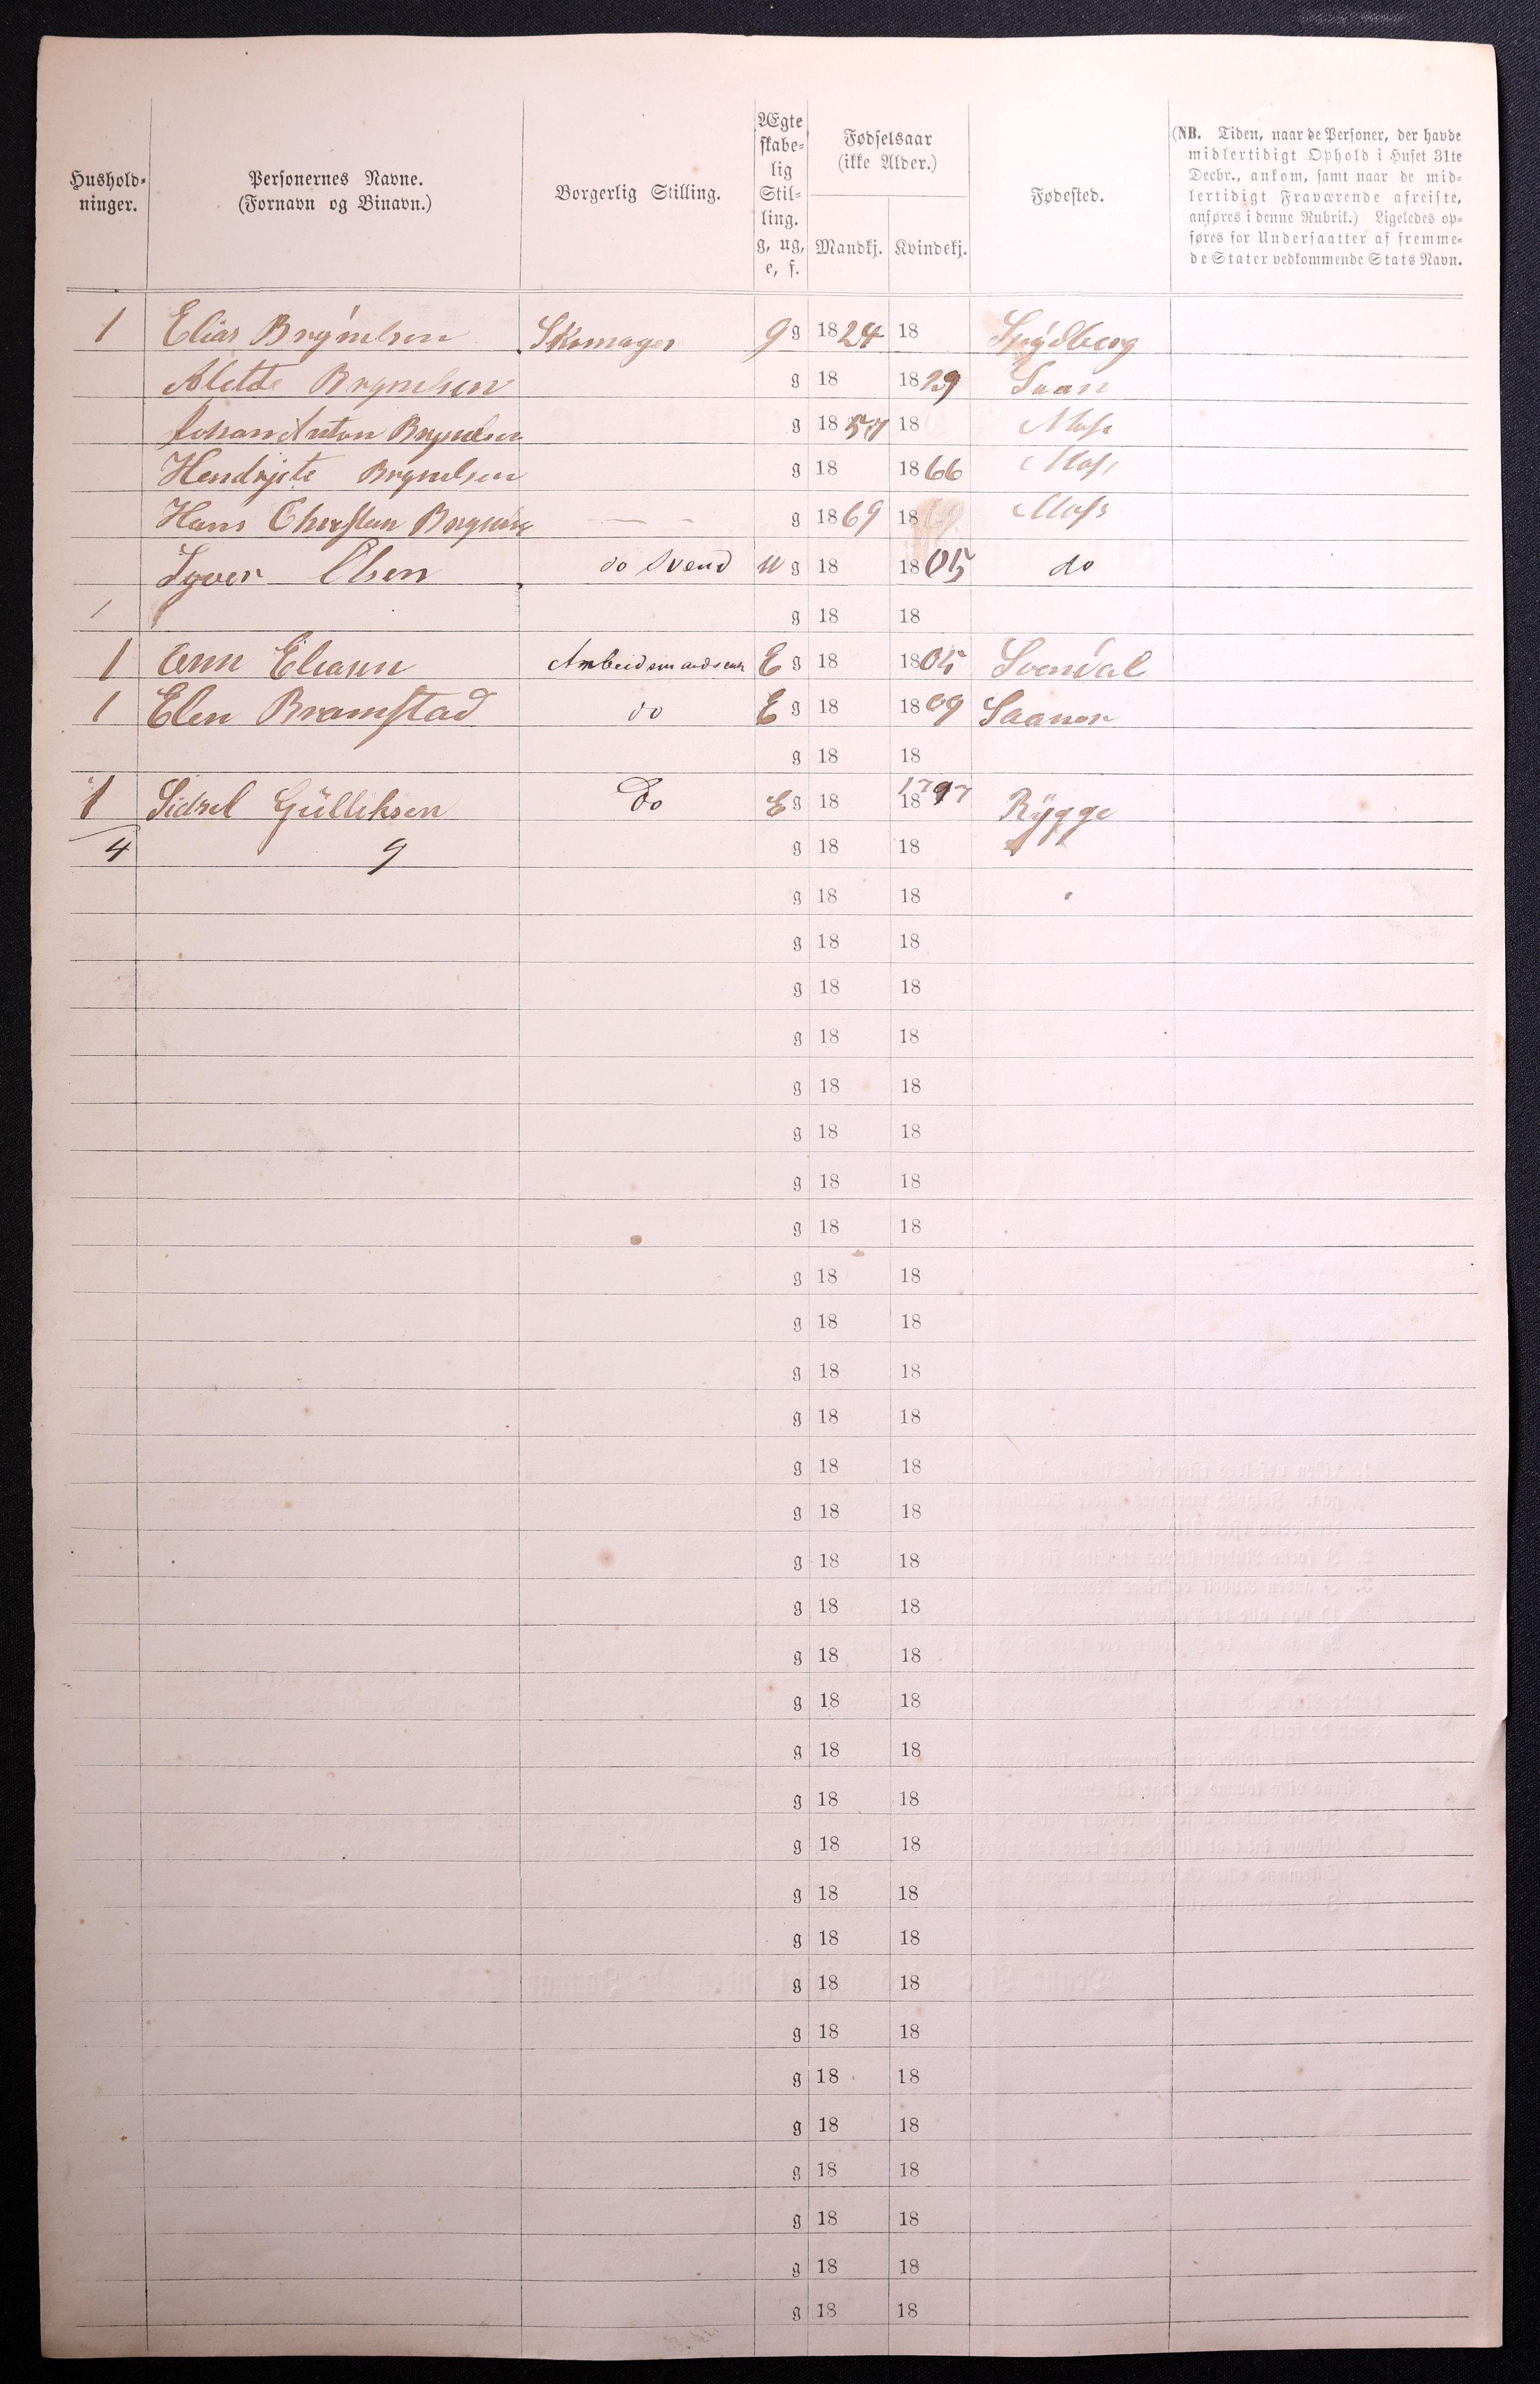 Hushold-ninger. Personernes Navne. (Fornavn og Binavn.) Borgerlig Stilling. Ægte skabe-lig Stil-ling. g, ug, e, f. Fødselsaar (ikke Alder.) Mandkj. Kvindekj. Fødested. (NB. Tiden, naar de Personer, der havde midlertidigt Ophold i Huset 31te Decbr., ankom, samt naar de mid-lertidigt Fraværende afreiste, anføres i denne Rubrik.) Ligeledes op-føres for Undersaatter af fremme-de Stater vedkommende Stats Navn.
1 Elias Brynelsen Skomager g g 1824 18 Spydberg
Alette Brynelsen g 18 1829 Saan
Johan Anton Brynelsen g 1857 18 Moss
Hendrjete Brynelsen g 18 1866 Moss
Hans Cherstan Brynelsen g 1869 18 Moss
Iver Olsen do Svend u g 18 1805 do
/ g 18 18
1 Ann Eliasen Arbeidsmandsenk E g 18 1805 Svendal
1 Elen Bramstad do E g 18 1809 Saaner
g 18 18
1 Sidsel Gülliksen Do E g 18 18 1797 Rygge
4 9 g 18 18
g 18 18
g 18 18
g 18 18
g 18 18
g 18 18
g 18 18
g 18 18
g 18 18
g 18 18
g 18 18
g 18 18
g 18 18
g 18 18
g 18 18
g 18 18
g 18 18
g 18 18
g 18 18
g 18 18
g 18 18
g 18 18
g 18 18
g 18 18
g 18 18
g 18 18
g 18 18
g 18 18
g 18 18
g 18 18
g 18 18
g 18 18